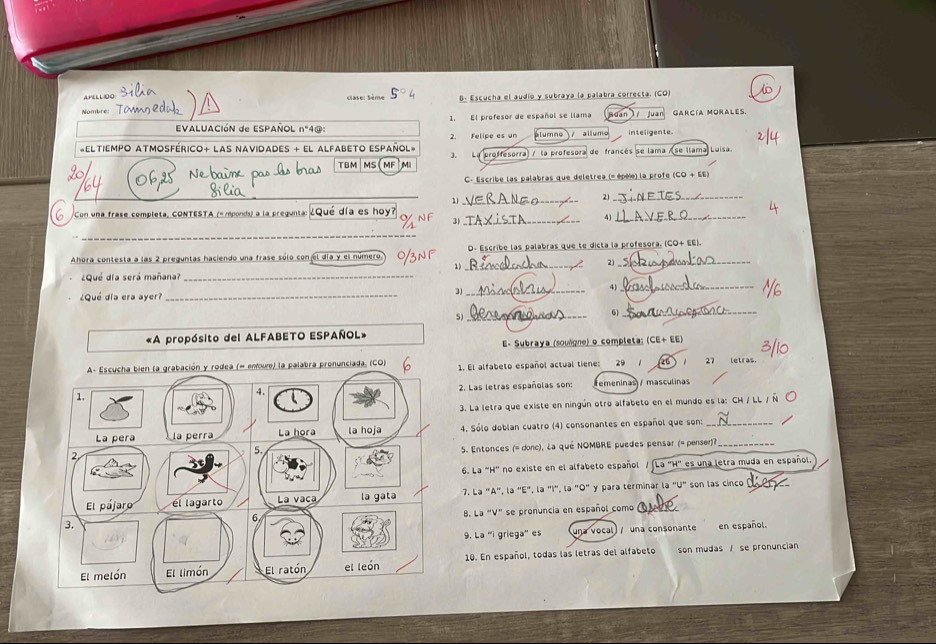 APELLIDO: Silia
Nombre: Tamsedak
Clase: 5ème 5°4
EVALUACIÓN de ESPAÑOL n°4@:
«EL TIEMPO ATMOSFÉRICO+ LAS NAVIDADES + EL ALFABETO ESPAÑOL»
20/64
06,25 Ne baisse pas les bras Silia
TBM MS MF MI
6 Con una frase completa, CONTESTA (= réponds) a la pregunta: ¿Qué día es hoy? NF
Ahora contesta a las 2 preguntas haciendo una frase sólo con el día y el número. 0/3 NF
- ¿Qué día será mañana?
- ¿Qué día era ayer?
«A propósito del ALFABETO ESPAÑOL»
A- Escucha bien la grabación y rodea (= entoure) la palabra pronunciada. (CO) 6
1. 4.
La pera la perra La hora la hoja
2. 5.
El pájaro el lagarto La vaca la gata
3. 6
El melón El limón El ratón el león
10
B- Escucha el audio y subraya la palabra correcta. (CO)
1. El profesor de español se llama Roan / Juan GARCÍA MORALES.
2. Felipe es un alumno / allumo inteligente. 2/4
3. La profresorra / la profesora de francés se lama / se llama Luisa.
C- Escribe las palabras que deletrea (= épèle) la profe (CO + EE)
1) VERANEO 2) JiNETES
3) TAXiSTA 4) LLAVERO 4
D- Escribe las palabras que te dicta la profesora. (CO+ EE).
1) 2)
3) 4) 1/6
5) 6)
E- Subraya (souligne) o completa: (CE+ EE) 3/10
1. El alfabeto español actual tiene: 29 / 26 / 27 letras.
2. Las letras españolas son: femeninas / masculinas
3. La letra que existe en ningún otro alfabeto en el mundo es la: CH / LL / Ñ
4. Sólo doblan cuatro (4) consonantes en español que son: Ñ
5. Entonces (= donc), ¿a qué NOMBRE puedes pensar (= penser)?
6. La "H" no existe en el alfabeto español / La "H" es una letra muda en español.
7. La "A", la "E", la "I", la "O" y para terminar la "U" son las cinco diez
8. La "V" se pronuncia en español como
9. La "i griega" es una vocal / una consonante en español.
10. En español, todas las letras del alfabeto son mudas / se pronuncian